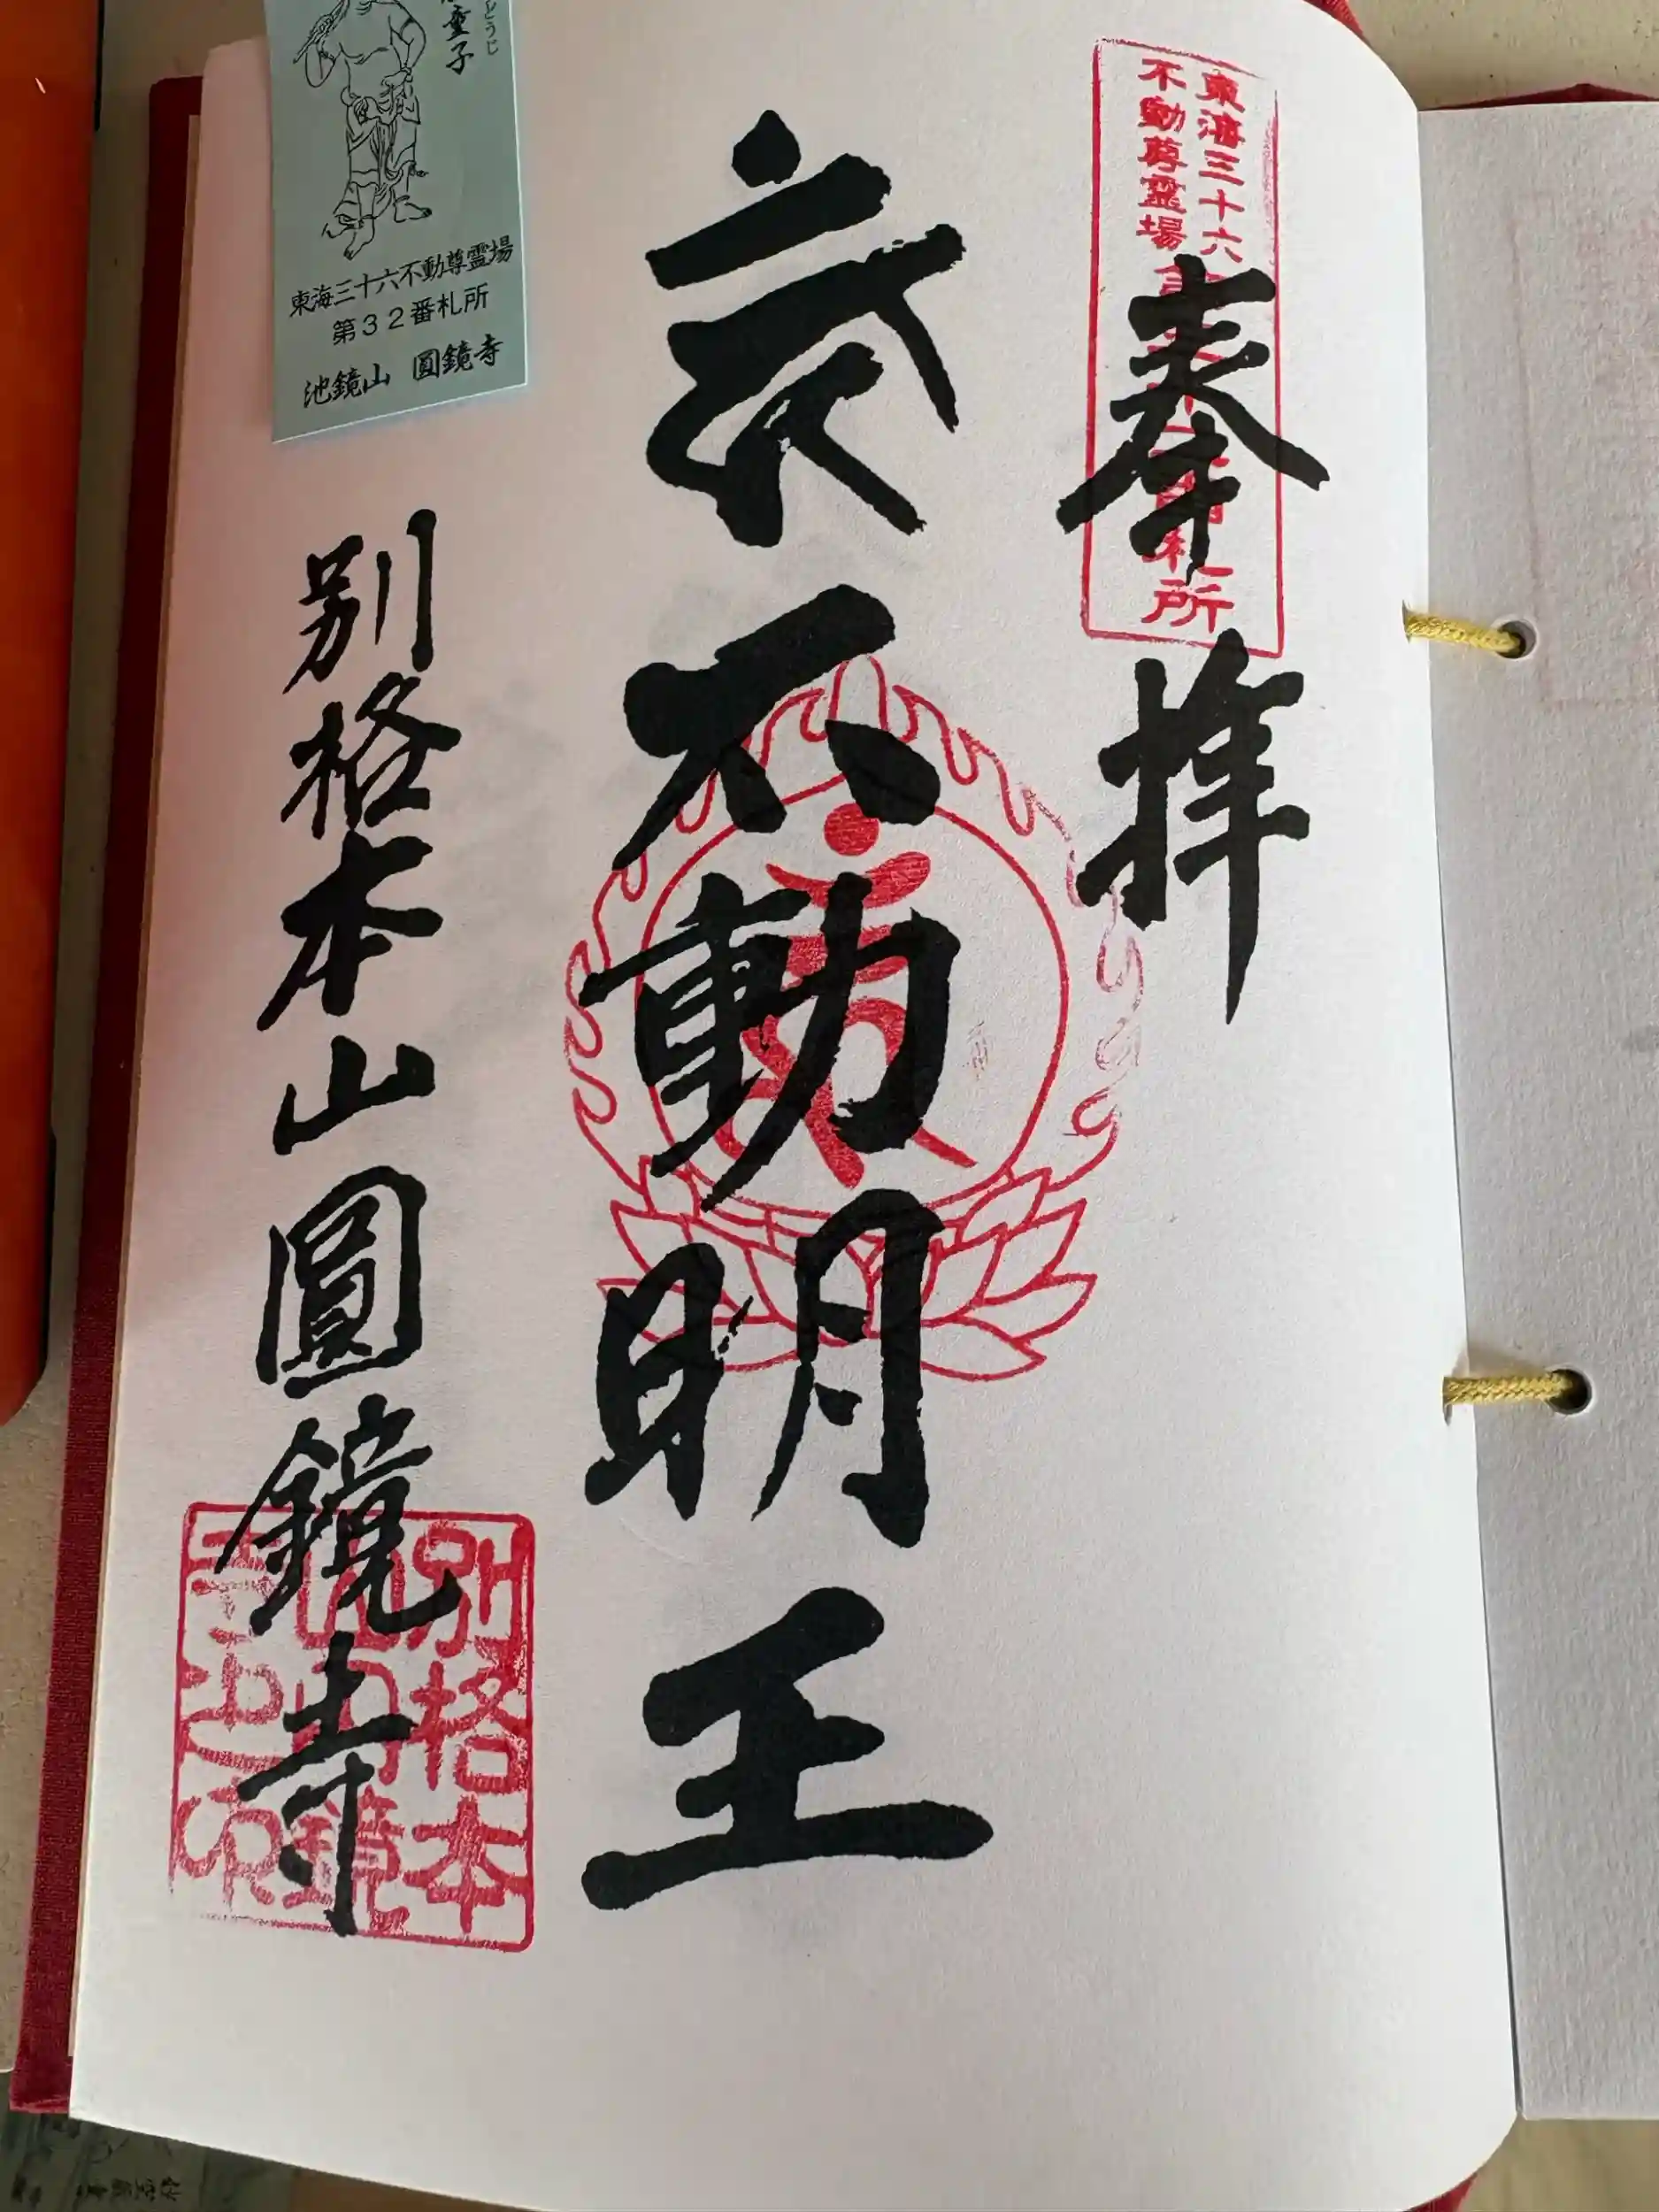 奉拝
東海三十六
不動尊霊場
札所
不動明王
別格本山圓鏡寺
別格本
童子
どうじ
東海三十六不動尊霊場
第32番札所
池鏡山 圓鏡寺